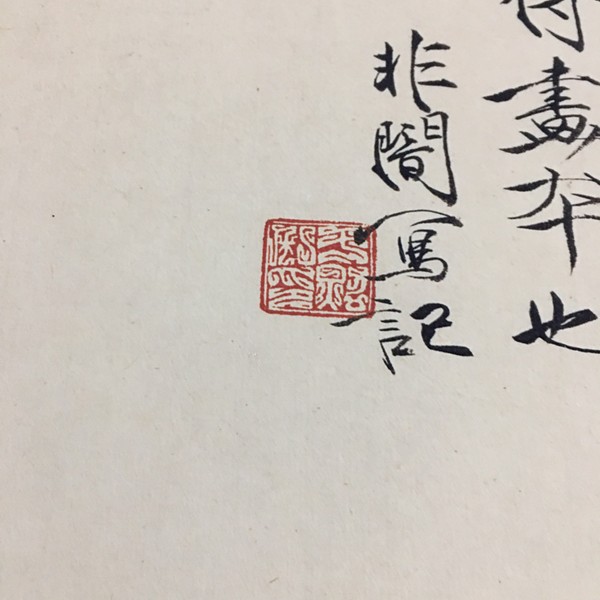 畫本也
非闇寫記